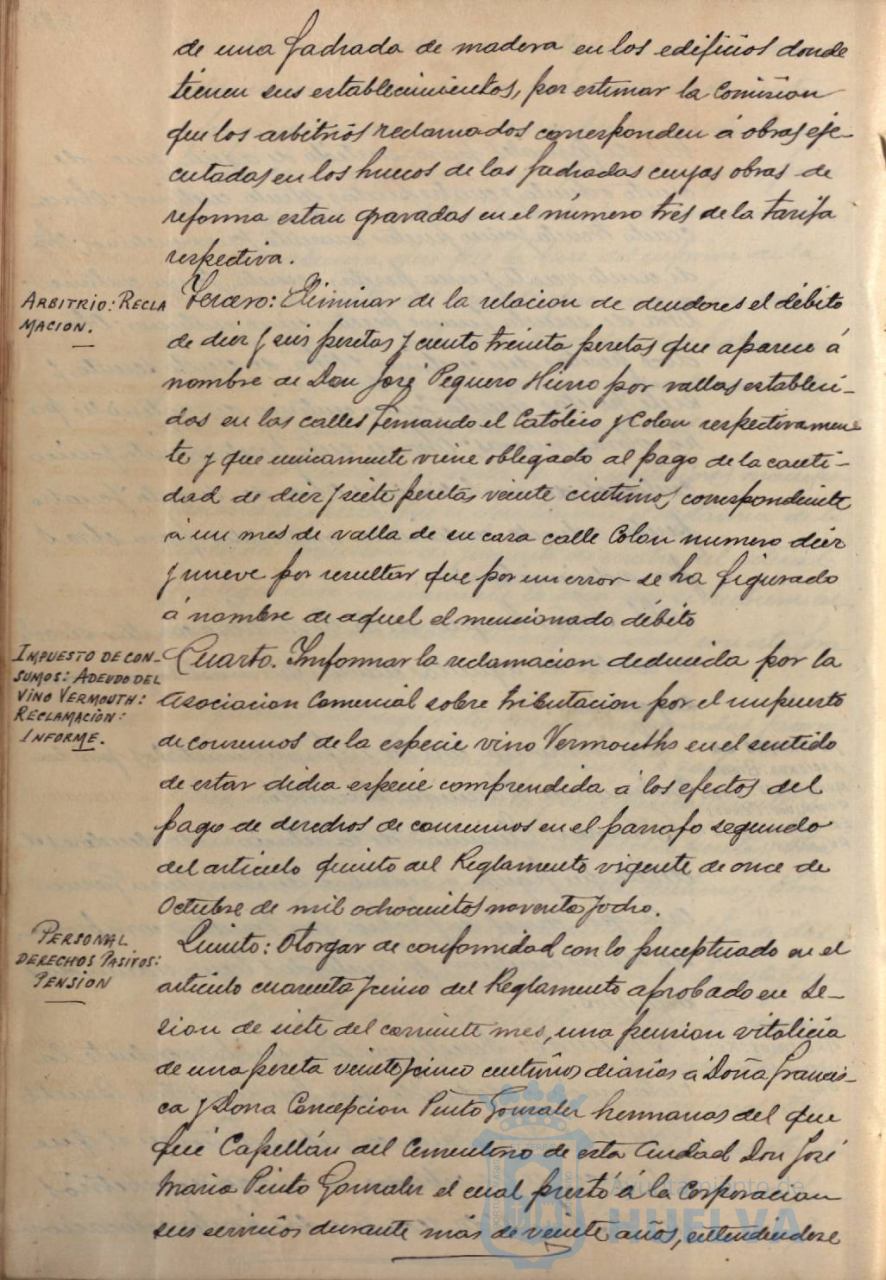 de una fachada de madera en los edificios donde
tienen sus establecimientos, por estimar la Comision
que los arbitrios reclamados corresponden á obras eje-
cutadas en los huecos de las fachadas cuyas obras de
reforma estan gravadas en el número tres de la tarifa
respectiva.
ARBITRIO: RECLA
MACION.
Tercero: Eliminar de la relacion de deudores el débito
de diez y seis pesetas y ciento treinta pesetas que aparece á
nombre de Don José Peguero Hierro por vallas estableci-
das en las calles Fernando el Católico y Colon respectivamen
te y que unicamente viene obligado al pago de la canti-
dad de diez y siete pesetas veinte centimos, correspondiente
á un mes de valla de su casa calle Colon numero diez
y nueve por resultar que por un error se ha figurado
á nombre de aquel el mencionado débito
IMPUESTO DE CON-
SUMOS: ADEUDO DEL
VINO VERMOUTH:
RECLAMACION:
INFORME.
Cuarto. Informar la reclamacion deducida por la
Asociacion Comercial sobre tributacion por el impuesto
de consumos de la especie vino Vermouths en el sentido
de estar dicha especie comprendida á los efectos del
pago de derechos de consumos en el parrafo segundo
del articulo quinto del Reglamento vigente de once de
Octubre de mil ochocientos noventa y ocho.
PERSONAL
DERECHOS PASIVOS:
PENSION
Quinto: Otorgar de conformidad con lo preceptuado en el
articulo cuarenta y cinco del Reglamento aprobado en Se-
sion de siete del corriente mes, una pension vitalicia
de una peseta veinte y cinco centimos diarios á Doña Francis-
ca y Doña Concepcion Pinto Gonzalez hermanas del que
fué Capellán del Cementerio de esta Ciudad Don José
Maria Pinto Gonzalez el cual prestó á la Corporacion
sus servicios durante más de veinte años, entendendose
Ayuntamiento de
HUELVA